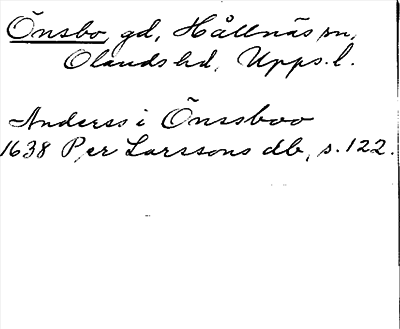 Önsbo, gd, Hållnäs sn,
Olands hd, Upps. l.
Anders i Önssboo
1638 Per Larssons db, s. 122.